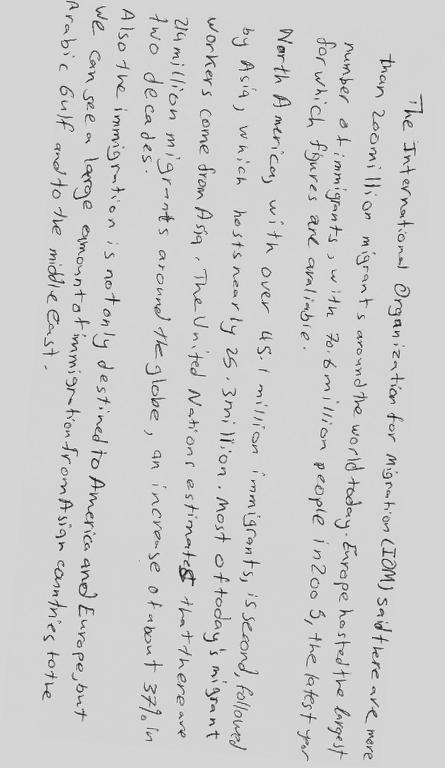 The International Organization for Migration (IOM) said there are more
than 200 million migrants around the world today. Europe hosted the largest
number of immigrants, with 70.6 million people in 2005, the latest year
for which figures are avaliable.
North America, with over 45.1 million immigrants, is second, followed
by Asia, which hosts nearly 25.3 million. Most of today's migrant
workers come from Asia. The United Nations estimates that there are
214 million migrants around the globe, an increase of about 37% in
two decades.
Also the immigration is not only destined to America and Europe, but
we can see a large amount of immigration from Asian countries to the
Arabic Gulf and to the middle east.